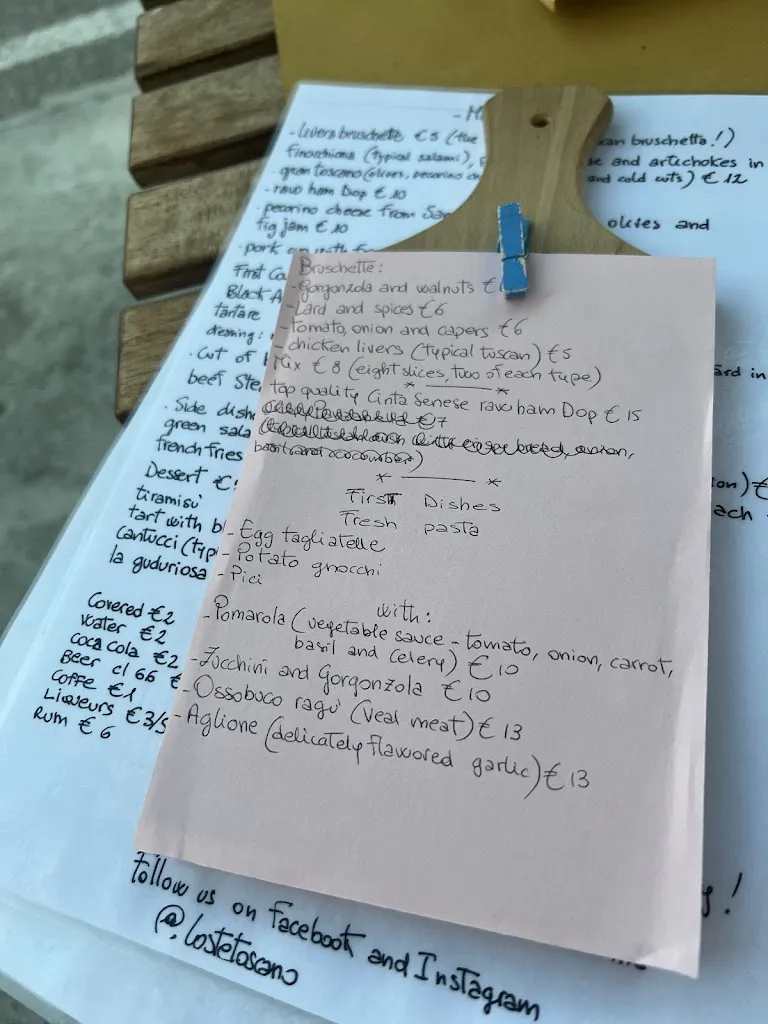 - livers bruschette €5 (the
can bruschetta!)
finocchiona (typical salami),
se and artichokes in
- gran toscano (olives, pecorino
and cold cuts) € 12
- raw ham Dop € 10
- pecorino cheese from
olives and
fig jam € 10
- pork
First
Black
tartare
dressing:
. Cut of
ard in
beef
. Side
green
french fries
ion) €
Dessert €
each
tiramisù
tart with
Cantucci
la guduriosa
Covered €2
Water €2
Coca cola €2
Beer cl 66 €
Coffe €1
Liqueurs €3/5
Rum €6
Bruschette:
- Gorgonzola and walnuts €
- Lard and spices €6
- tomato, onion and capers €6
- chicken livers (typical tuscan) €5
Mix €8 (eight slices, two of each type)
* —— *
top quality Cinta Senese raw ham Dop € 15
€7
onion,
basil and cocumber)
* —— *
First Dishes
Fresh pasta
- Egg tagliatelle
- Potato gnocchi
- Pici
with:
- Pomarola (vegetable sauce - tomato, onion, carrot,
basil and celery) €10
- Zucchini and Gorgonzola €10
- Ossobuco ragù (veal meat) € 13
- Aglione (delicately flavored garlic) € 13
!
Follow us on Facebook and Instagram
@lostetoscano